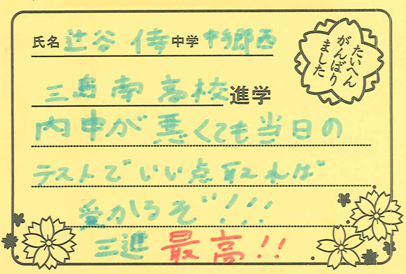 氏名 辻谷 倖 中学 中郷西
たいへん
がんばり
ました
三島南高校進学
内申が悪くても当日の
テストでいい点取れば
受かるぞ!!!
三進 最高!!